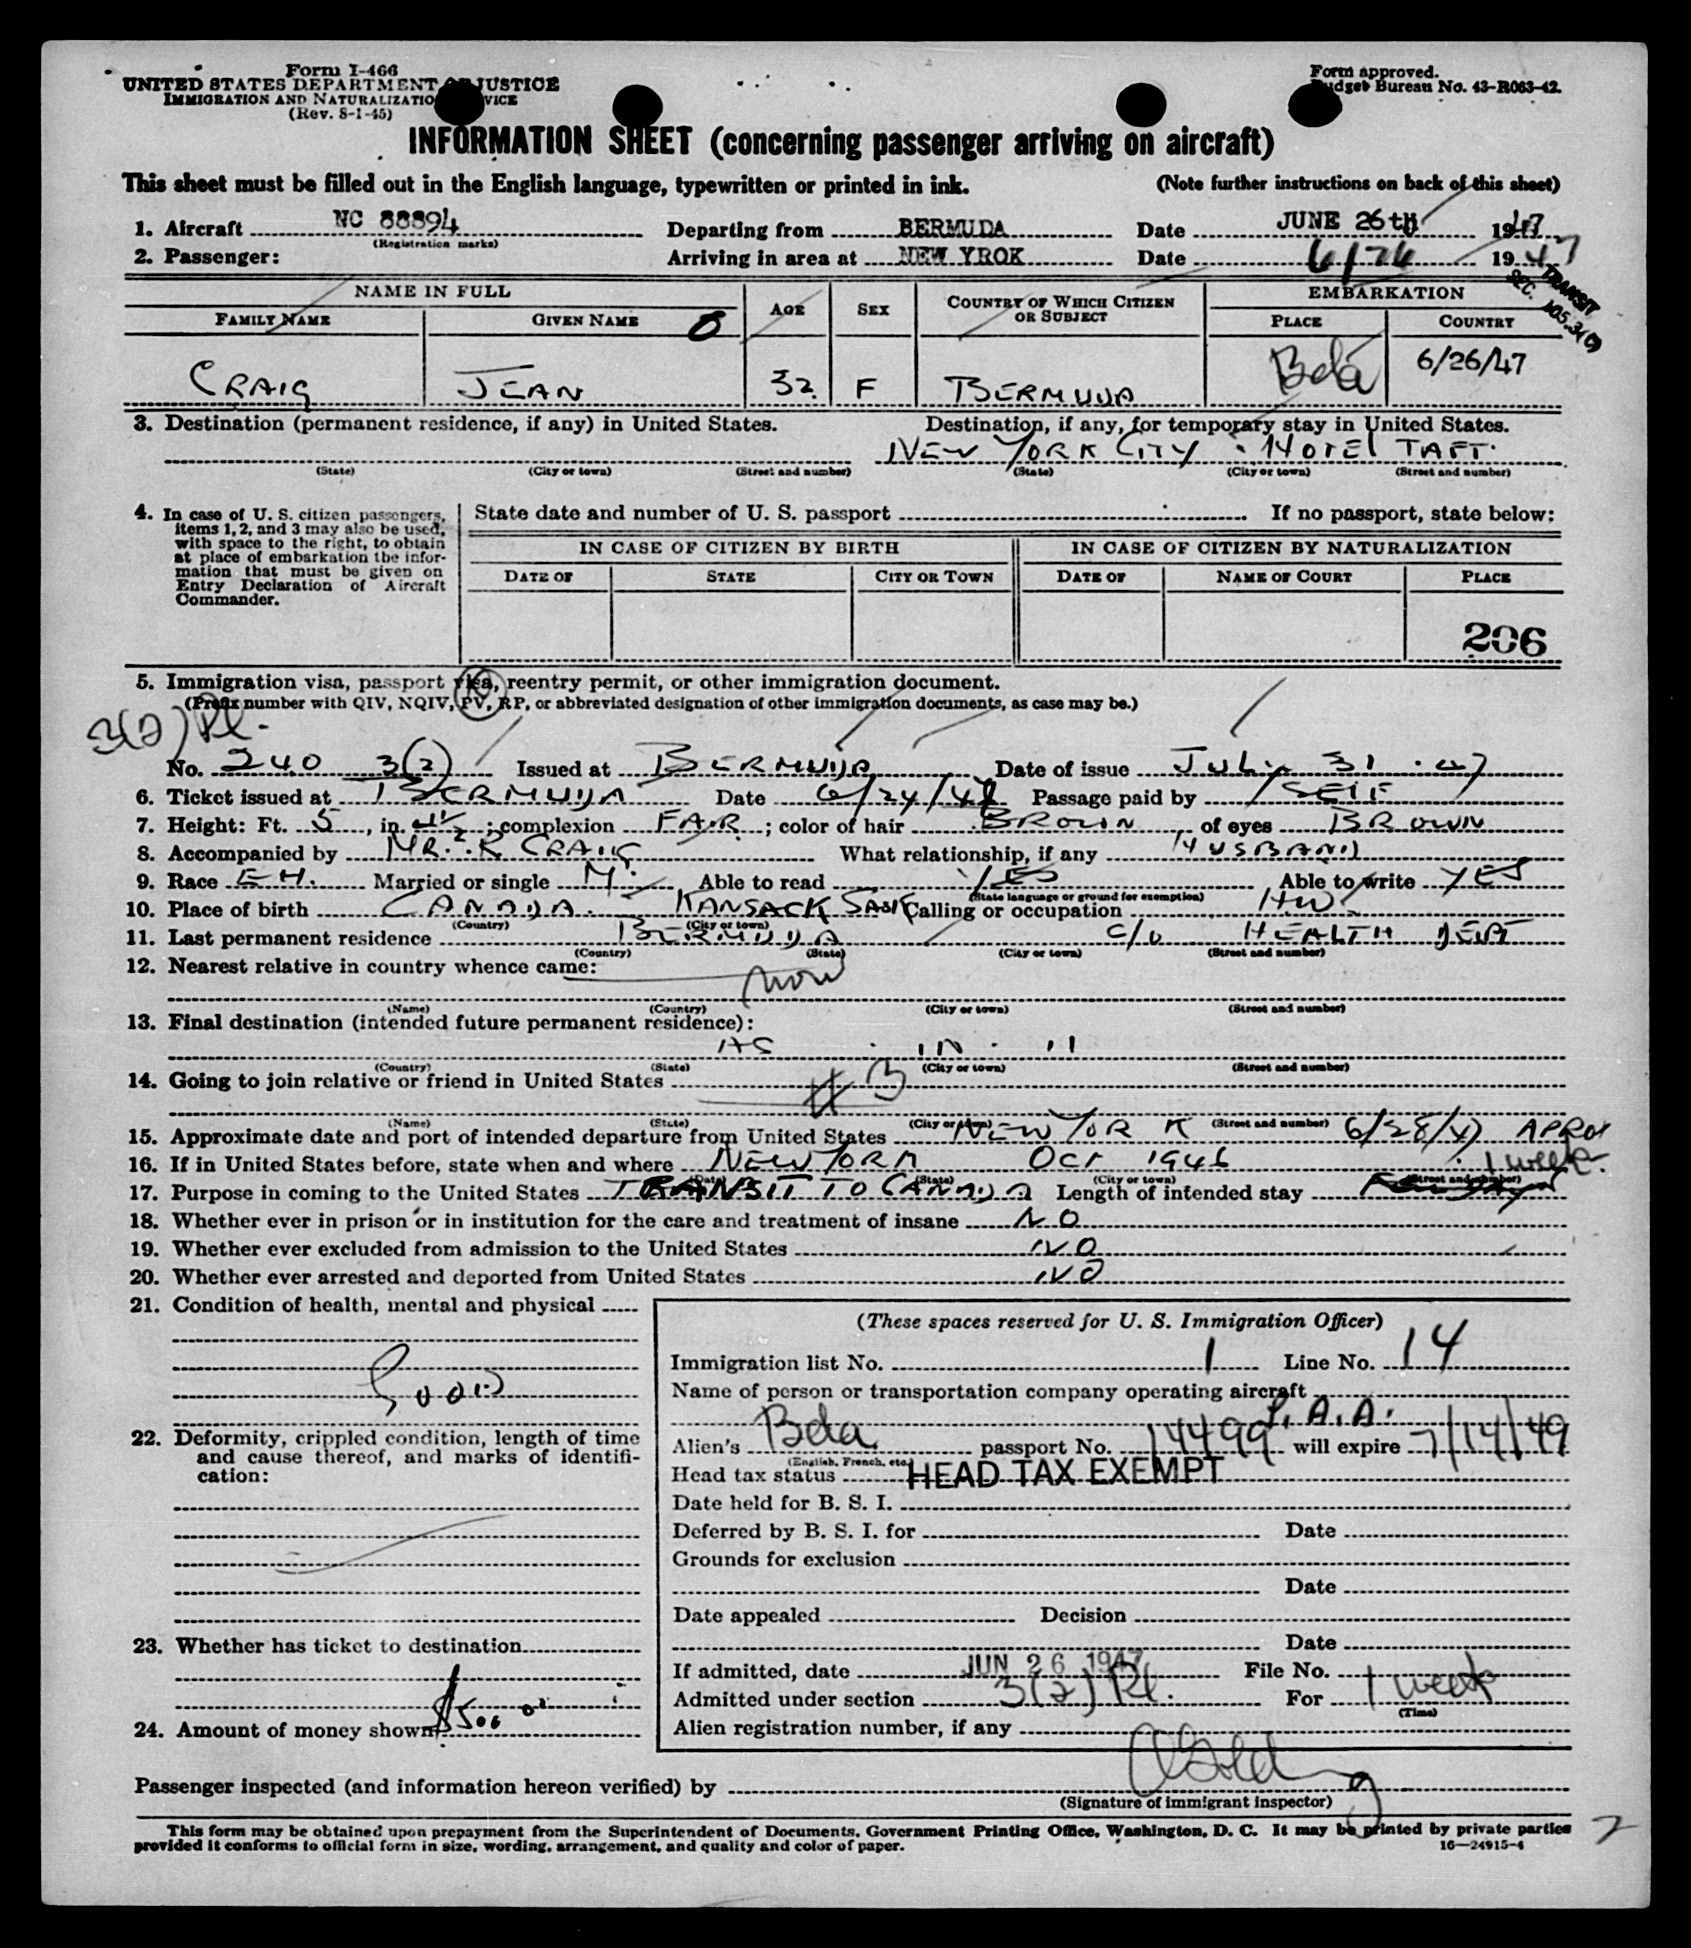 Form I-466
UNITED STATES DEPARTMENT OF JUSTICE
IMMIGRATION AND NATURALIZATION SERVICE
(Rev. 8-1-45)
Form approved.
Budget Bureau No. 43-R063-42.
INFORMATION SHEET (concerning passenger arriving on aircraft)
This sheet must be filled out in the English language, typewritten or printed in ink. (Note further instructions on back of this sheet)
1. Aircraft NC 88894 Departing from BERMUDA Date JUNE 26th 1947
(Registration marks)
2. Passenger: Arriving in area at NEW YROK Date 6/26 1947
TRANSIT
SEC.
NAME IN FULL AGE SEX COUNTRY OF WHICH CITIZEN OR SUBJECT EMBARKATION
FAMILY NAME GIVEN NAME PLACE COUNTRY
CRAIG JEAN 32 F BERMUDA Bda 6/26/47
3. Destination (permanent residence, if any) in United States. Destination, if any, for temporary stay in United States.
NEW YORK CITY . HOTEl TAFT.
(State) (City or town) (Street and number) (State) (City or town) (Street and number)
4. In case of U. S. citizen passengers, items 1, 2, and 3 may also be used, with space to the right, to obtain at place of embarkation the information that must be given on Entry Declaration of Aircraft Commander.
State date and number of U. S. passport If no passport, state below:
IN CASE OF CITIZEN BY BIRTH IN CASE OF CITIZEN BY NATURALIZATION
DATE OF STATE CITY OR TOWN DATE OF NAME OF COURT PLACE
206
5. Immigration visa, passport visa, reentry permit, or other immigration document.
(Prefix number with QIV, NQIV, PV, RP, or abbreviated designation of other immigration documents, as case may be.)
3(2) Pl.
No. 240 3(2) Issued at BERMUDA Date of issue JULY 31 . 47
6. Ticket issued at BERMUDA Date 6/24/47 Passage paid by SElF
7. Height: Ft. 5, in. 4½; complexion FAIR; color of hair BROWN of eyes BROWN
8. Accompanied by MR. R CRAIG What relationship, if any HUSBAND
9. Race EH. Married or single M. Able to read YES Able to write YES
(State language or ground for exemption)
10. Place of birth CANADA. KANSACK SASK Calling or occupation HW
(Country) (City or town)
11. Last permanent residence BERMUDA c/o HEALTH DEPT
(Country) (State) (City or town) (Street and number)
12. Nearest relative in country whence came:
(Name) (Country) (City or town) (Street and number)
13. Final destination (intended future permanent residence):
AS . IN . 11
(Country) (State) (City or town) (Street and number)
14. Going to join relative or friend in United States # 3
(Name) (State) (City or town) (Street and number)
15. Approximate date and port of intended departure from United States NEW YORK 6/28/47 APROX
16. If in United States before, state when and where NEW YORK OCT 1946
1 week.
(Date) (State) (City or town) (Street and number)
17. Purpose in coming to the United States TRANSIT TO CANADA Length of intended stay
18. Whether ever in prison or in institution for the care and treatment of insane NO
19. Whether ever excluded from admission to the United States NO
20. Whether ever arrested and deported from United States NO
21. Condition of health, mental and physical
GOOD
22. Deformity, crippled condition, length of time and cause thereof, and marks of identification:
23. Whether has ticket to destination
24. Amount of money shown $500 00
(These spaces reserved for U. S. Immigration Officer)
Immigration list No. 1 Line No. 14
Name of person or transportation company operating aircraft
P. A. A.
Alien's Bda passport No. 14499 will expire 7/14/49
(English, French, etc.)
Head tax status HEAD TAX EXEMPT
Date held for B. S. I.
Deferred by B. S. I. for Date
Grounds for exclusion
Date
Date appealed Decision
Date
If admitted, date JUN 26 1947 File No.
Admitted under section 3(2) Pl. For 1 week
(Time)
Alien registration number, if any
Passenger inspected (and information hereon verified) by
(Signature of immigrant inspector)
This form may be obtained upon prepayment from the Superintendent of Documents, Government Printing Office, Washington, D. C. It may be printed by private parties
provided it conforms to official form in size, wording, arrangement, and quality and color of paper. 16—24915-4
2